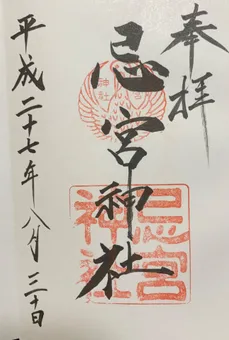 奉拝
忌宮神社
神社
忌宮神社
平成二十七年八月三十日